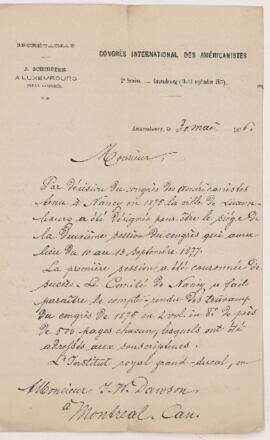 SECRÉTARIAT
CONGRÈS INTERNATIONAL DES AMÉRICANISTES
A LUXEMBOURG
2e Session. — Luxembourg (10-13 septembre 1877).
Luxembourg, le 30 mai 1876.
Monsieur,
Par décision du congrès des américanistes
tenu à Nancy en 1875 la ville de Luxem-
bourg a été désignée pour être le siège de
la deuxième session du congrès qui aura
lieu du 10 au 13 septembre 1877.
La première session a été couronnée de
succès. Le Comité de Nancy a fait
paraître le compte-rendu des travaux
du congrès de 1875 en 2 vol in 8° de près
de 500 pages chacun, lesquels ont été
adressés aux souscripteurs.
L'Institut royal grand-ducal, en
Monsieur J. W. Dawson
à Montreal - Can.